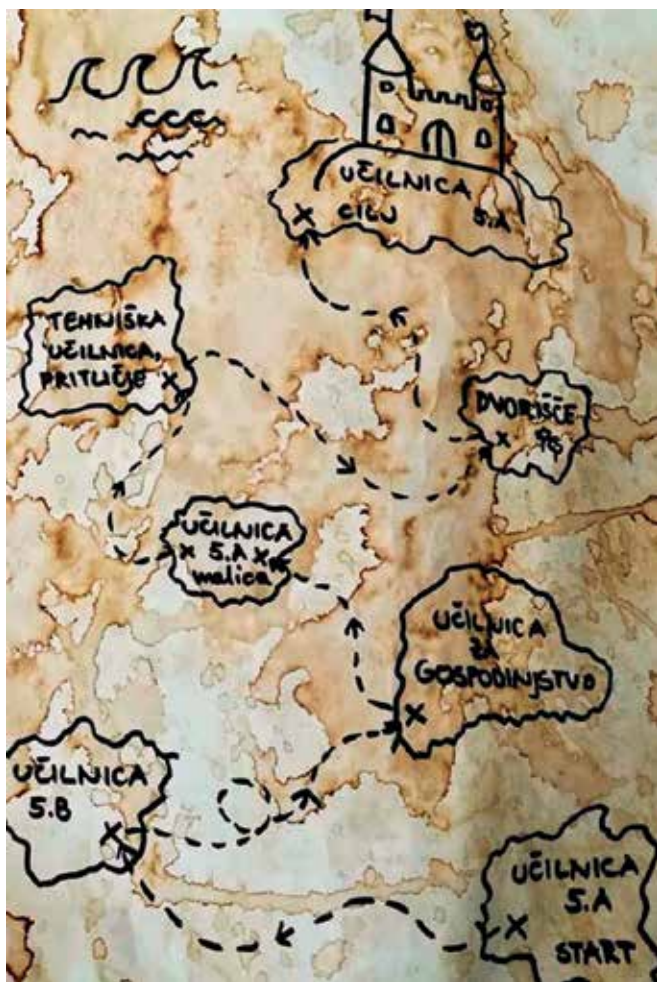 UČILNICA
CILJ 5.A
TEHNIŠKA
UČILNICA,
PRITLIČJE
DVORIŠČE
UČILNICA
5.A
malica
UČILNICA
ZA
GOSPODINJSTVO
UČILNICA
5.B
UČILNICA
5.A
START